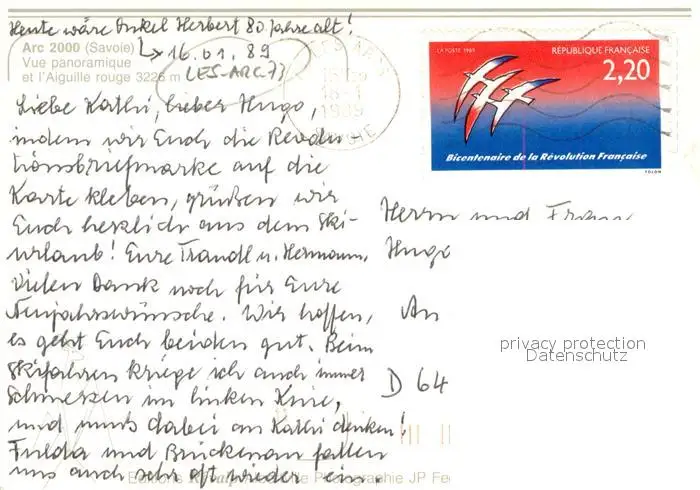 Heute wäre Onkel Herbert 80 Jahre alt!
Arc 2000 (Savoie)
Vue panoramique
et l'Aiguille rouge 3226 m
16.01.89
(LES-ARC 73)
18-1
1989
LA POSTE 1989
RÉPUBLIQUE FRANÇAISE
2,20
Bicentenaire de la Révolution Française
FOLON
Liebe Kathi, lieber Hugo,
indem wir Euch die Revolu
tionsbriefmarke auf die
Karte kleben, grüßen wir
Euch herzlich aus dem Ski-
urlaub! Eure Traudl u. Hermann.
Vielen Dank noch für Eure
Neujahrswünsche. Wir hoffen,
es geht Euch beiden gut. Beim
Skifahren kriege ich auch immer
Schmerzen im linken Knie,
und muß dabei an Kathi denken!
Fulda und Brückenau fallen
uns auch sehr oft wieder ein.
Herrn und Frau
Hugo
An
D 64
privacy protection
Datenschutz
Editions
Photographie JP